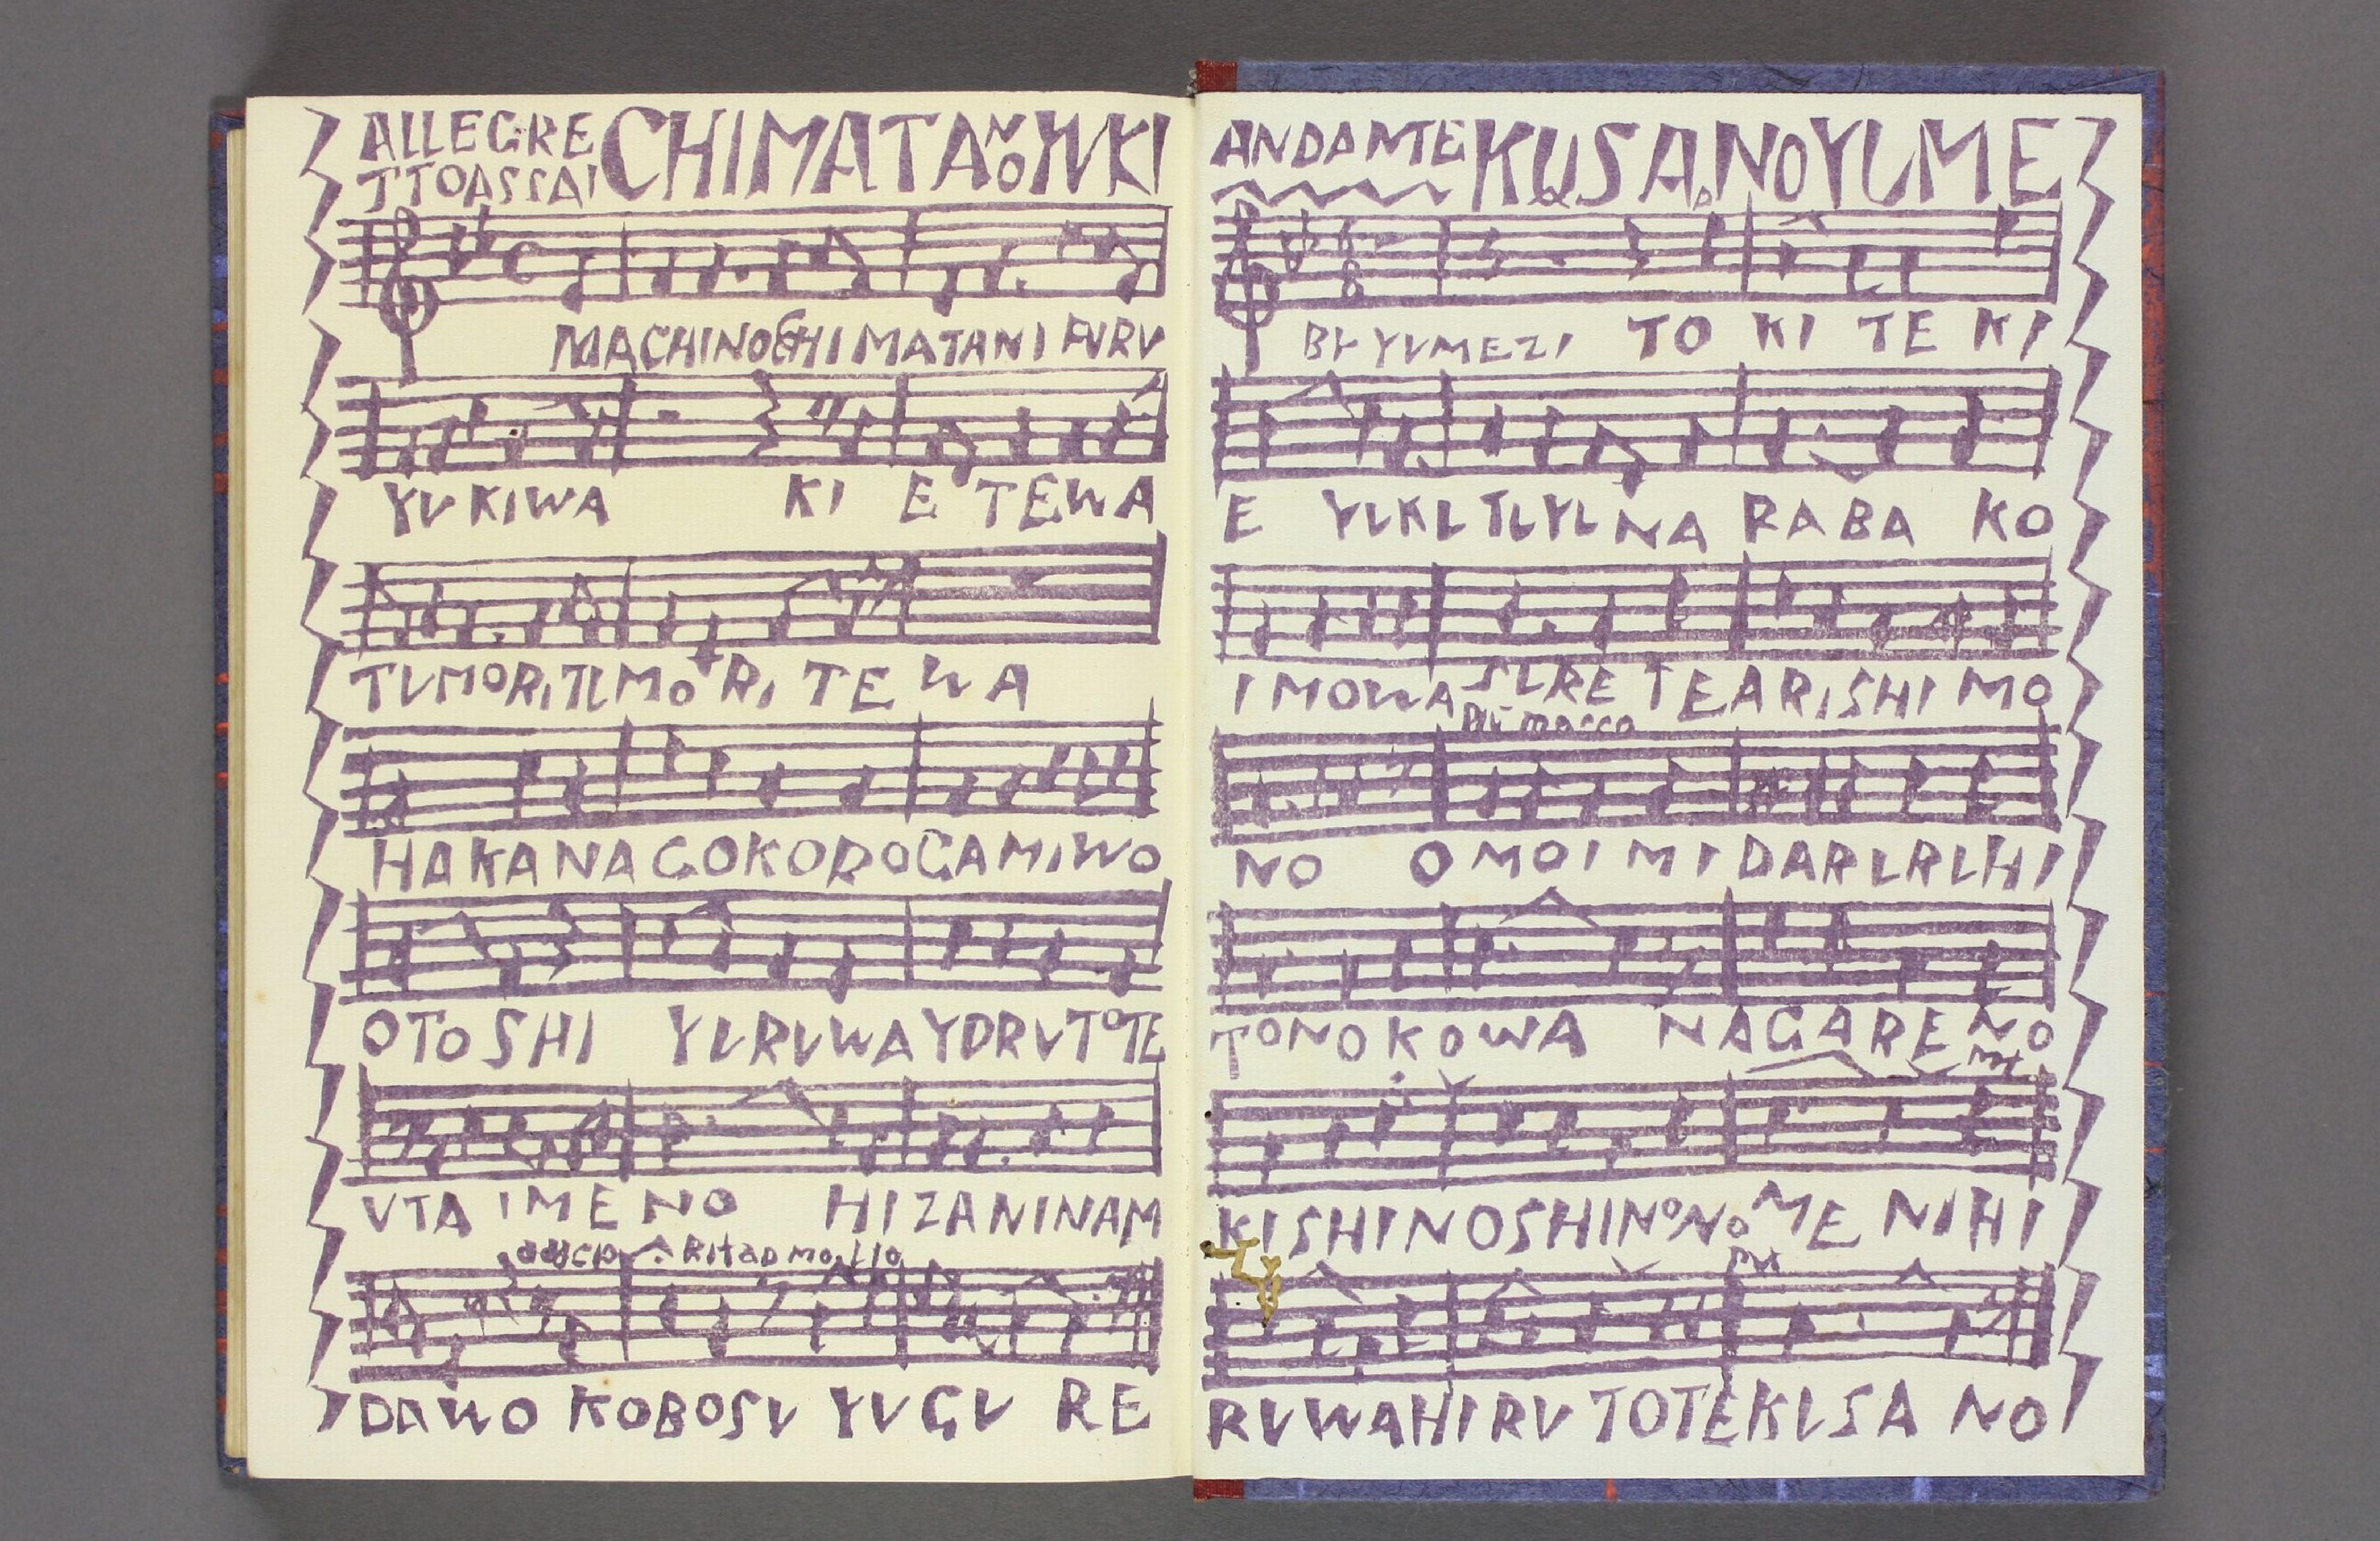 ALLEGRE
TTOASSAI
CHIMATA NO YVKI
MACHINO CHIMATANI FVRV
YVKIWA KI E TEWA
TVMORITVMORI TE WA
HAKANAGOKOROGAMIWO
OTOSHI YVRVWAYORVTOTE
VTAIMENO HIZANINAM
DAWO KOBOSV YVGV RE
ANDANTE KUSA NO YUME
BY YVMEZI TO KI TE KI
E YVKV TVYV NA RABA KO
IMOWA SVRE TEARISHI MO
Più mosso
NO OMOI MIDARVRVHI
TONOKOWA NAGARE NO
KISHINOSHINONOME NIHI
RVWAHIRV TOTEKVSA NO